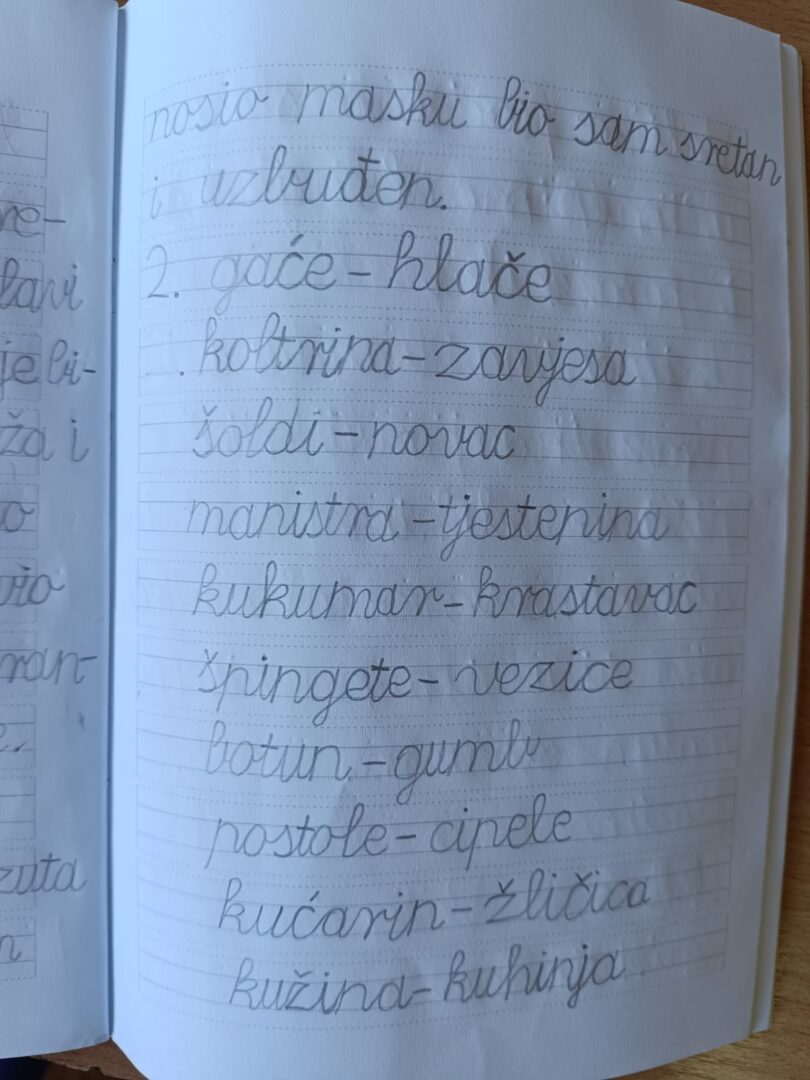 re-
lavi
je bi-
ža i
o
vio
ran-
zuta
n
nosio masku bio sam sretan
i uzbuđen.
2. gaće - hlače
koltrina - zavjesa
šoldi - novac
manistra - tjestenina
kukumar - krastavac
špingete - vezice
botun - gumb
postole - cipele
kućarin - žličica
kužina - kuhinja